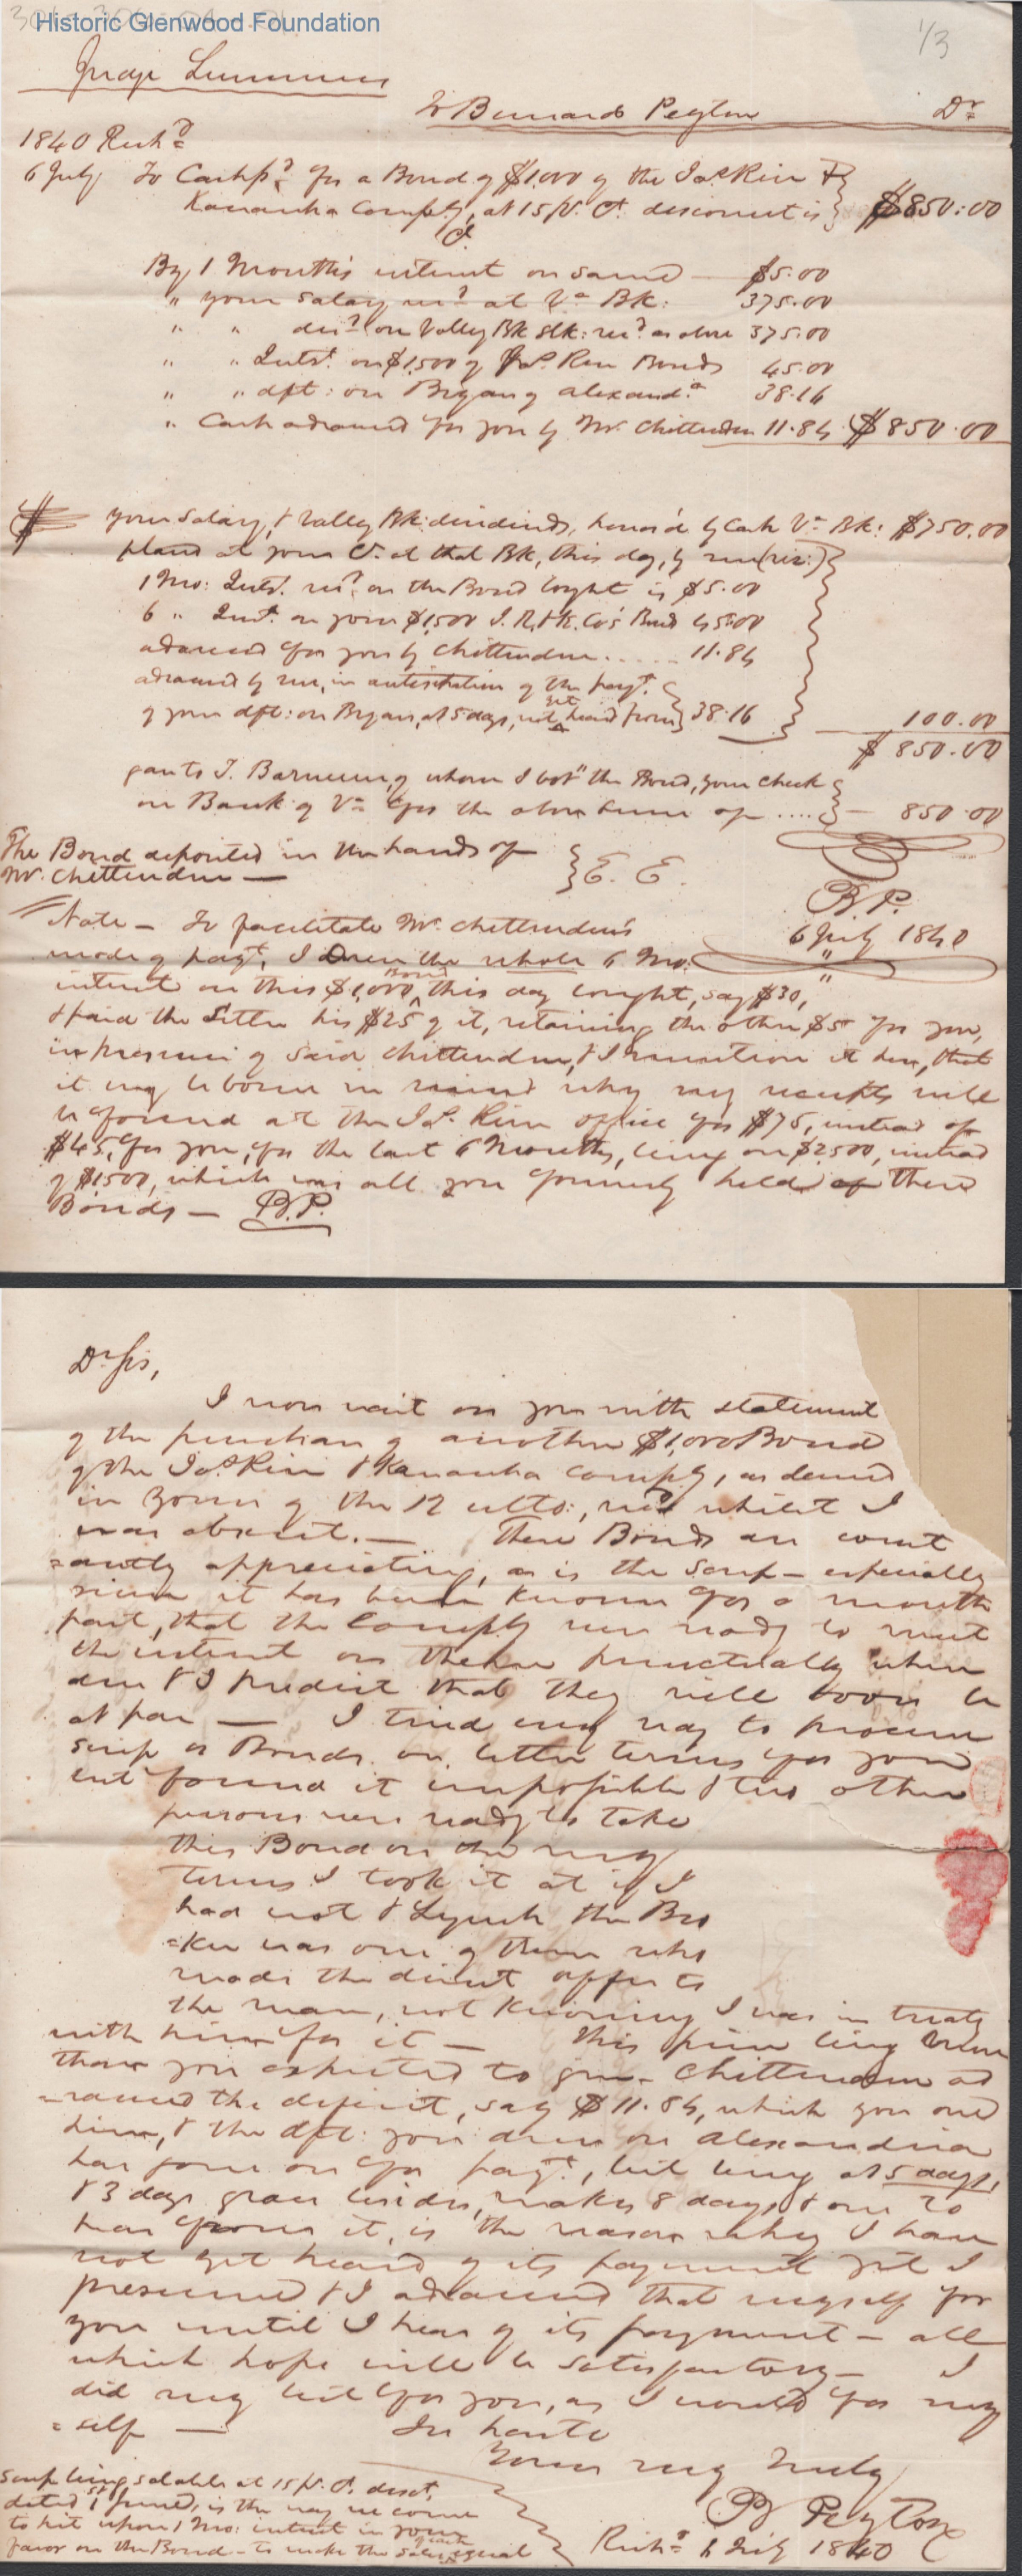 Historic Glenwood Foundation
1/3
Judge Summers
To Bernard Peyton Dr
1840 Richd
6 July To Cash pd for a Bond of $1,000 of the Jas River &
Kanawha Compy, at 15 pr. Ct. discount is $850:00
Cr
By 1 Month's interest on same $5.00
" your Salary recd at Va Bk: 375.00
" " divd on Valley Bk stk: recd as above 375.00
" " Intst. on $1,500 of Jas. River Bonds 45.00
" " dft: on Bryan of Alexanda 38.16
" Cash advanced for you by Mr. Chittenden 11.84 $850.00
your Salary, & Valley Bk: dividends, honor'd by Cash Va Bk: $750.00
placed at your Ct. at that Bk, this day, by me (viz:)
1 Mo: Intst. recd on the Bond bought is $5.00
6 " Inst. on your $1,500 J. R. & K. Co's Bonds 45.00
advanced for you by Chittenden ..... 11.84
advanced by me, in anticipation of the payt.
of your dft: on Bryan, at 5 days, not yet heard from 38.16 100.00
$850.00
gave to J. of whom I bot the Bond, your check
on Bank of Va for the above sum of .... 850.00
The Bond deposited in the hands of
Mr. Chittenden —
E. E.
B.P.
6 July 1840
Note — To facilitate Mr. Chittenden's
mode of payt, I drew the whole 6 Mo:
interest on this $1,000 Bond this day bought, say $30,
& paid the Seller his $25 of it, retaining the other $5 for you,
in presence of said Chittenden, & I mention it here, that
it may be borne in mind why my receipts will
be found at the Jas. River office for $75, instead of
$45, for you, for the last 6 Months, being on $2500, instead
of $1500, which was all you formerly held of these
Bonds — B.P.
Dr Sir,
I now wait on you with statement
of the purchase of another $1,000 Bond
of the Jas River & Kanawha Compy, as desired
in yours of the 12 ulto:, recd whilst I
was absent. — These Bonds are const
=antly appreciating, as is the Scrip — especially
since it has been known for a month
past, that the Compy were ready to meet
the interest on them punctually when
due & I predict that they will soon be
at par — I tried every way to procure
scrip or Bonds on better terms for you
but found it impossible & two other
persons were ready to take
this Bond on the very
terms I took it at if I
had not & Lynch the Bro
=ker was one of them who
made the direct offer to
the man, not knowing I was in treaty
with him for it — this price being more
than you expected to give — Chittenden ad
=vanced the deficit, say $11.84, which you owe
him, & the dft: you drew on Alexandria
has gone on for payt., but being at 5 days,
& 3 days grace besides, makes 8 days & one to
hear from it, is the reason why I have
not yet heard of its payment yet I
presume & I advanced that myself for
you until I hear of its payment — all
which hope will be satisfactory — I
did my best for you, as I would for my
=self — In haste
Yours very truly
B Peyton
Richd 6 July 1840
Scrip being salable at 15 pr. Ct. disct,
dated 1st June, is the way we come
to hit upon 1 Mo: interest in your
favor on the Bond — to make the sales equal